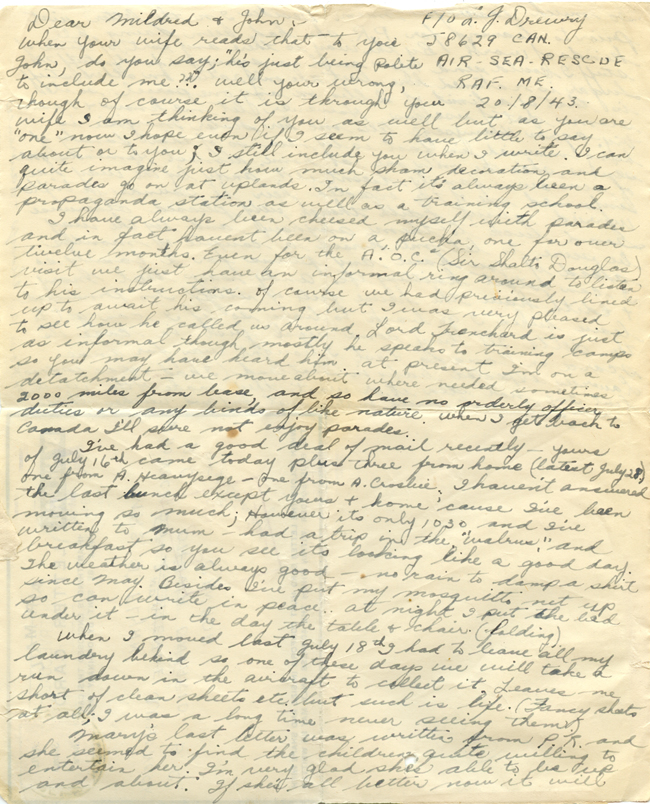 Dear Mildred & John,- F/O A. J. Drewry
When your wife reads that to you J8629 CAN.
John, do you say; "he's just being polite AIR-SEA-RESCUE
to include me?" well your wrong, RAF. ME.
though of course it is through your 20/8/43.
wife I am thinking of you as well but as you are
"one" now I hope even if I seem to have little to say
about or to you; I still include you when I write. I can
quite imagine just how much sham, decoration and
parades go on at uplands. In fact it's always been a
propaganda station as well as a training school.
I have always been cheesed myself with parades
and in fact havent been on a pucka, one for over
twelve months. Even for the A.O.C. (Sir Sholto Douglas)
visit we just have an informal ring around to listen
to his instructions. of course we had previously lined
up to await his coming but I was very pleased
to see how he called us around. Lord Trenchard is just
as informal though mostly he speaks to training camps
so you may have heard him. at present I'm on a
detachment - we move about where needed sometimes
2000 miles from base, and so have no orderly officer
duties or any binds of like nature. When I get back to
Canada I'll sure not enjoy parades.
I've had a good deal of mail recently - yours
of July 16th came today plus three from home (latest July 28)
one from A. Heavysege - one from A. Crosbie. I haven't answered
the last bunch except yours & home cause I've been
moving so much; However its only 1030 and I've
written to mum - had a trip in the "walrus" and
breakfast so you see its looking like a good day.
The weather is always good - no rain to damp a shirt
since May. Besides I've put my mosquito net up
so can write in peace. at night I put the bed
under it - in the day the table & chair (folding)
When I moved last July 18th I had to leave all my
laundry behind so one of these days we will take a
run down in the aircraft to collect it. Leaves me
short of clean sheets etc. but such is life. (Fancy sheets
at all, I was a long time never seeing them)
Mary's last letter was written from P.R. and
she seemed to find the children quite willing to
entertain her. I'm very glad she's able to be up
and about. If she's all better now it will